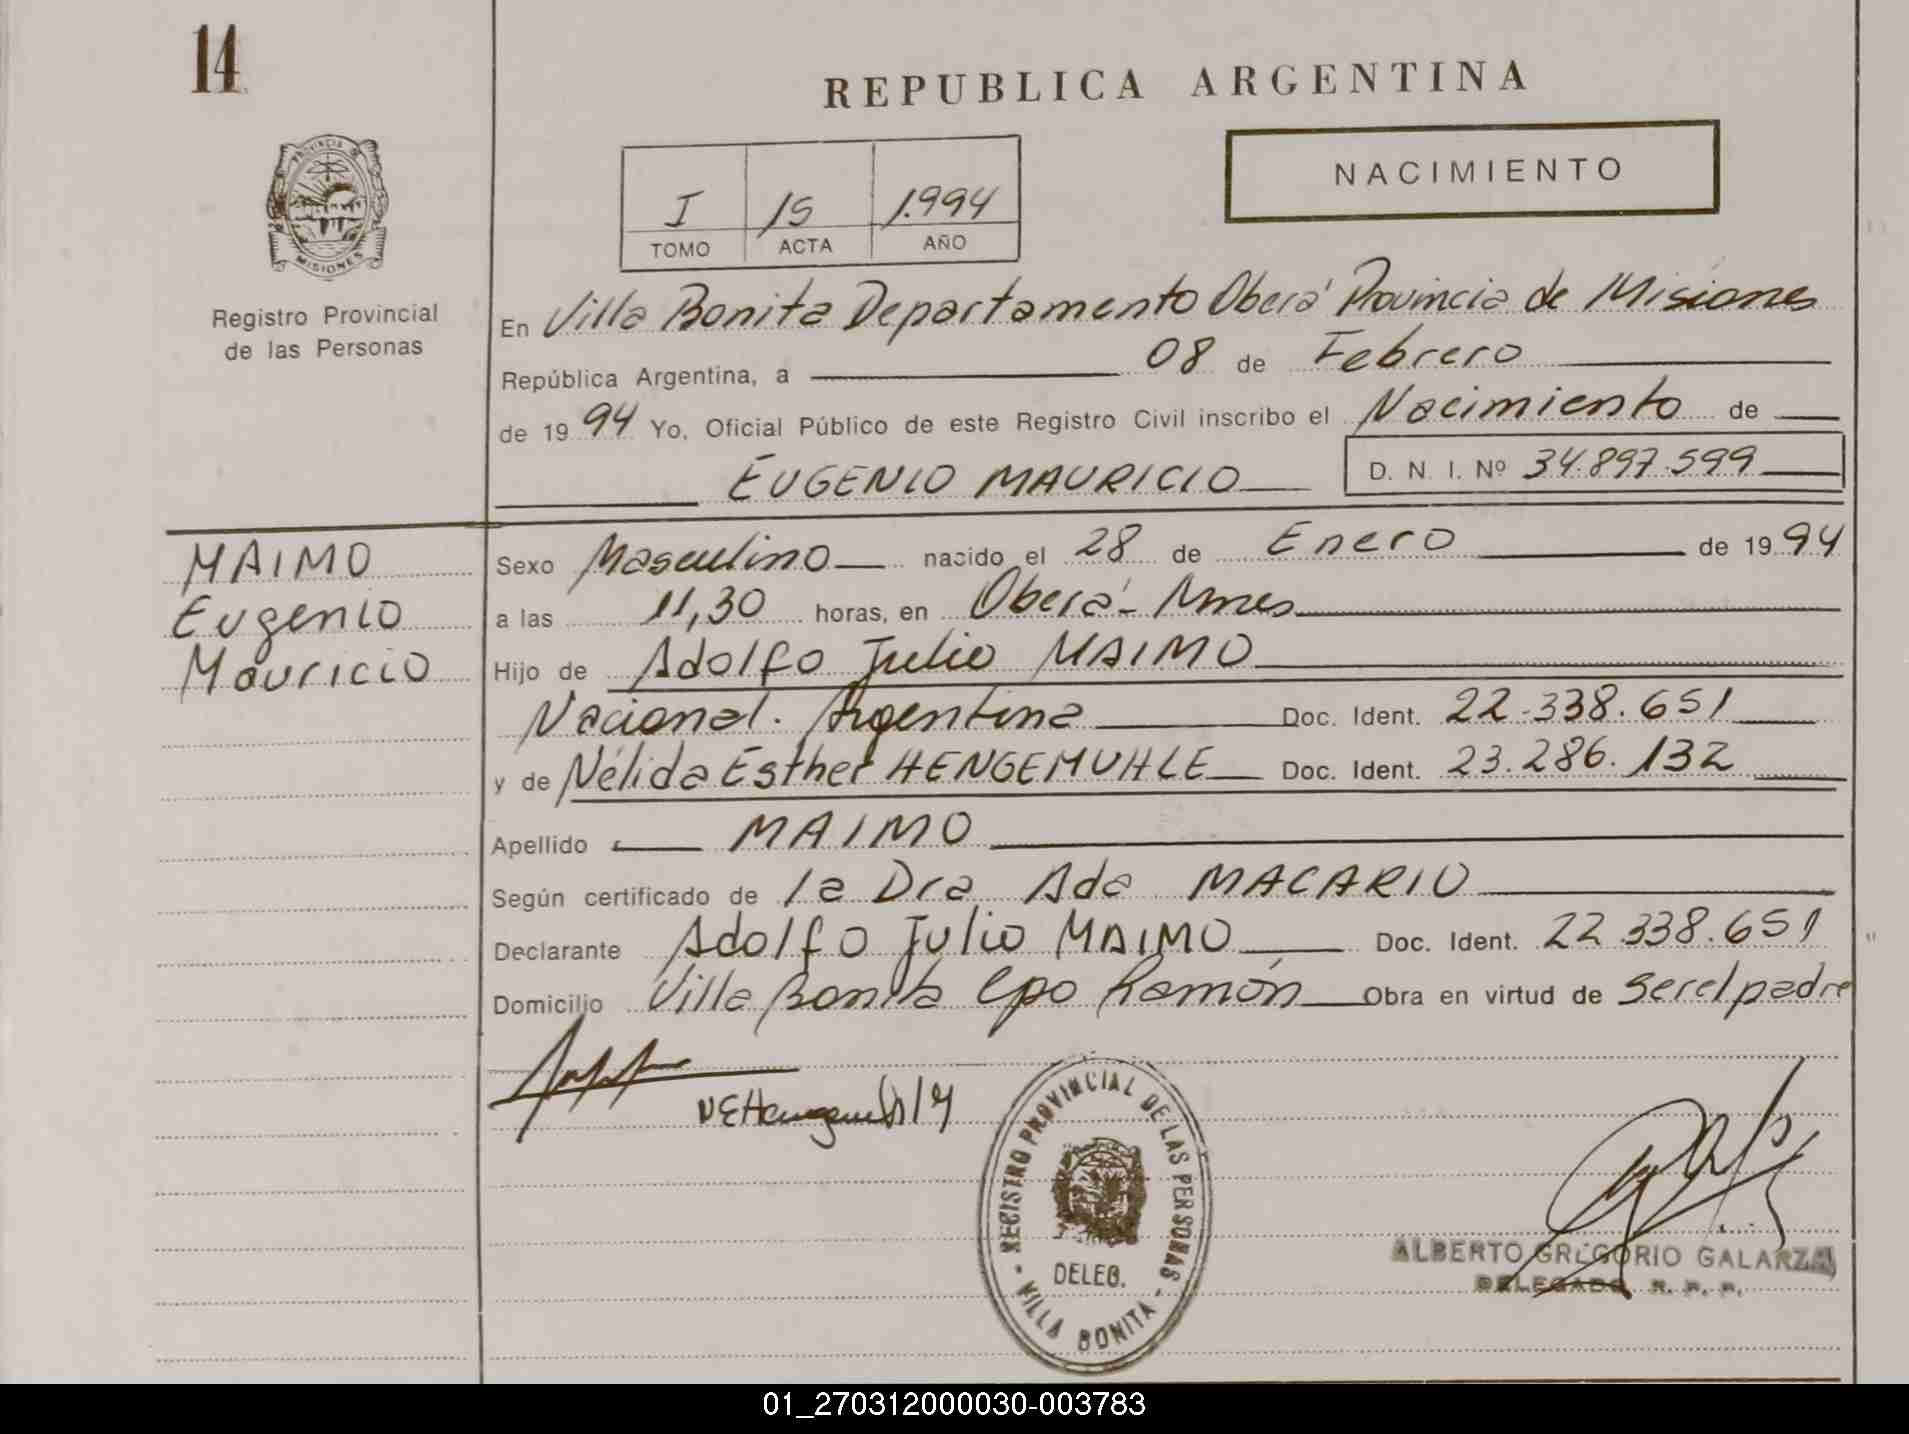 14
REPUBLICA ARGENTINA
NACIMIENTO
I 15 1.994
TOMO ACTA AÑO
PROVINCIA DE MISIONES
Registro Provincial
de las Personas
En Villa Bonita Departamento Oberá Provincia de Misiones
República Argentina, a 08 de Febrero
de 1994 Yo, Oficial Público de este Registro Civil inscribo el Nacimiento de
EUGENIO MAURICIO D. N. I. Nº 34.897.599
MAIMO
Eugenio
Mauricio
Sexo Masculino nacido el 28 de Enero de 1994
a las 11,30 horas, en Oberá - Mnes
Hijo de Adolfo Julio MAIMO
Nacional. Argentina Doc. Ident. 22.338.651
y de Nélida Esther HENGEMUHLE Doc. Ident. 23.286.132
Apellido MAIMO
Según certificado de la Dra Ada MACARIO
Declarante Adolfo Julio MAIMO Doc. Ident. 22.338.651
Domicilio Villa Bonita Cpo Ramón Obra en virtud de ser el padre
REGISTRO PROVINCIAL DE LAS PERSONAS
DELEG.
- VILLA BONITA -
ALBERTO GREGORIO GALARZA
DELEGADO R. P. P.
01_270312000030-003783